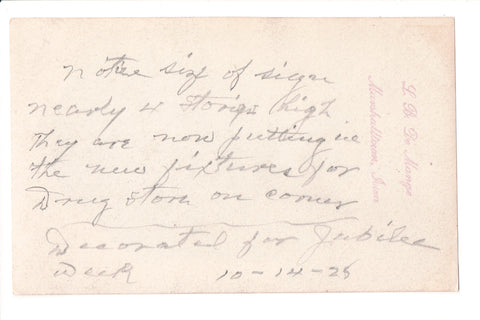 Notice size of sign
nearly 4 stories high
They are now putting in
the new fixtures for
Drug Store on corner
Decorated for Jubilee
Week 10-14-25
Marshalltown, Iowa